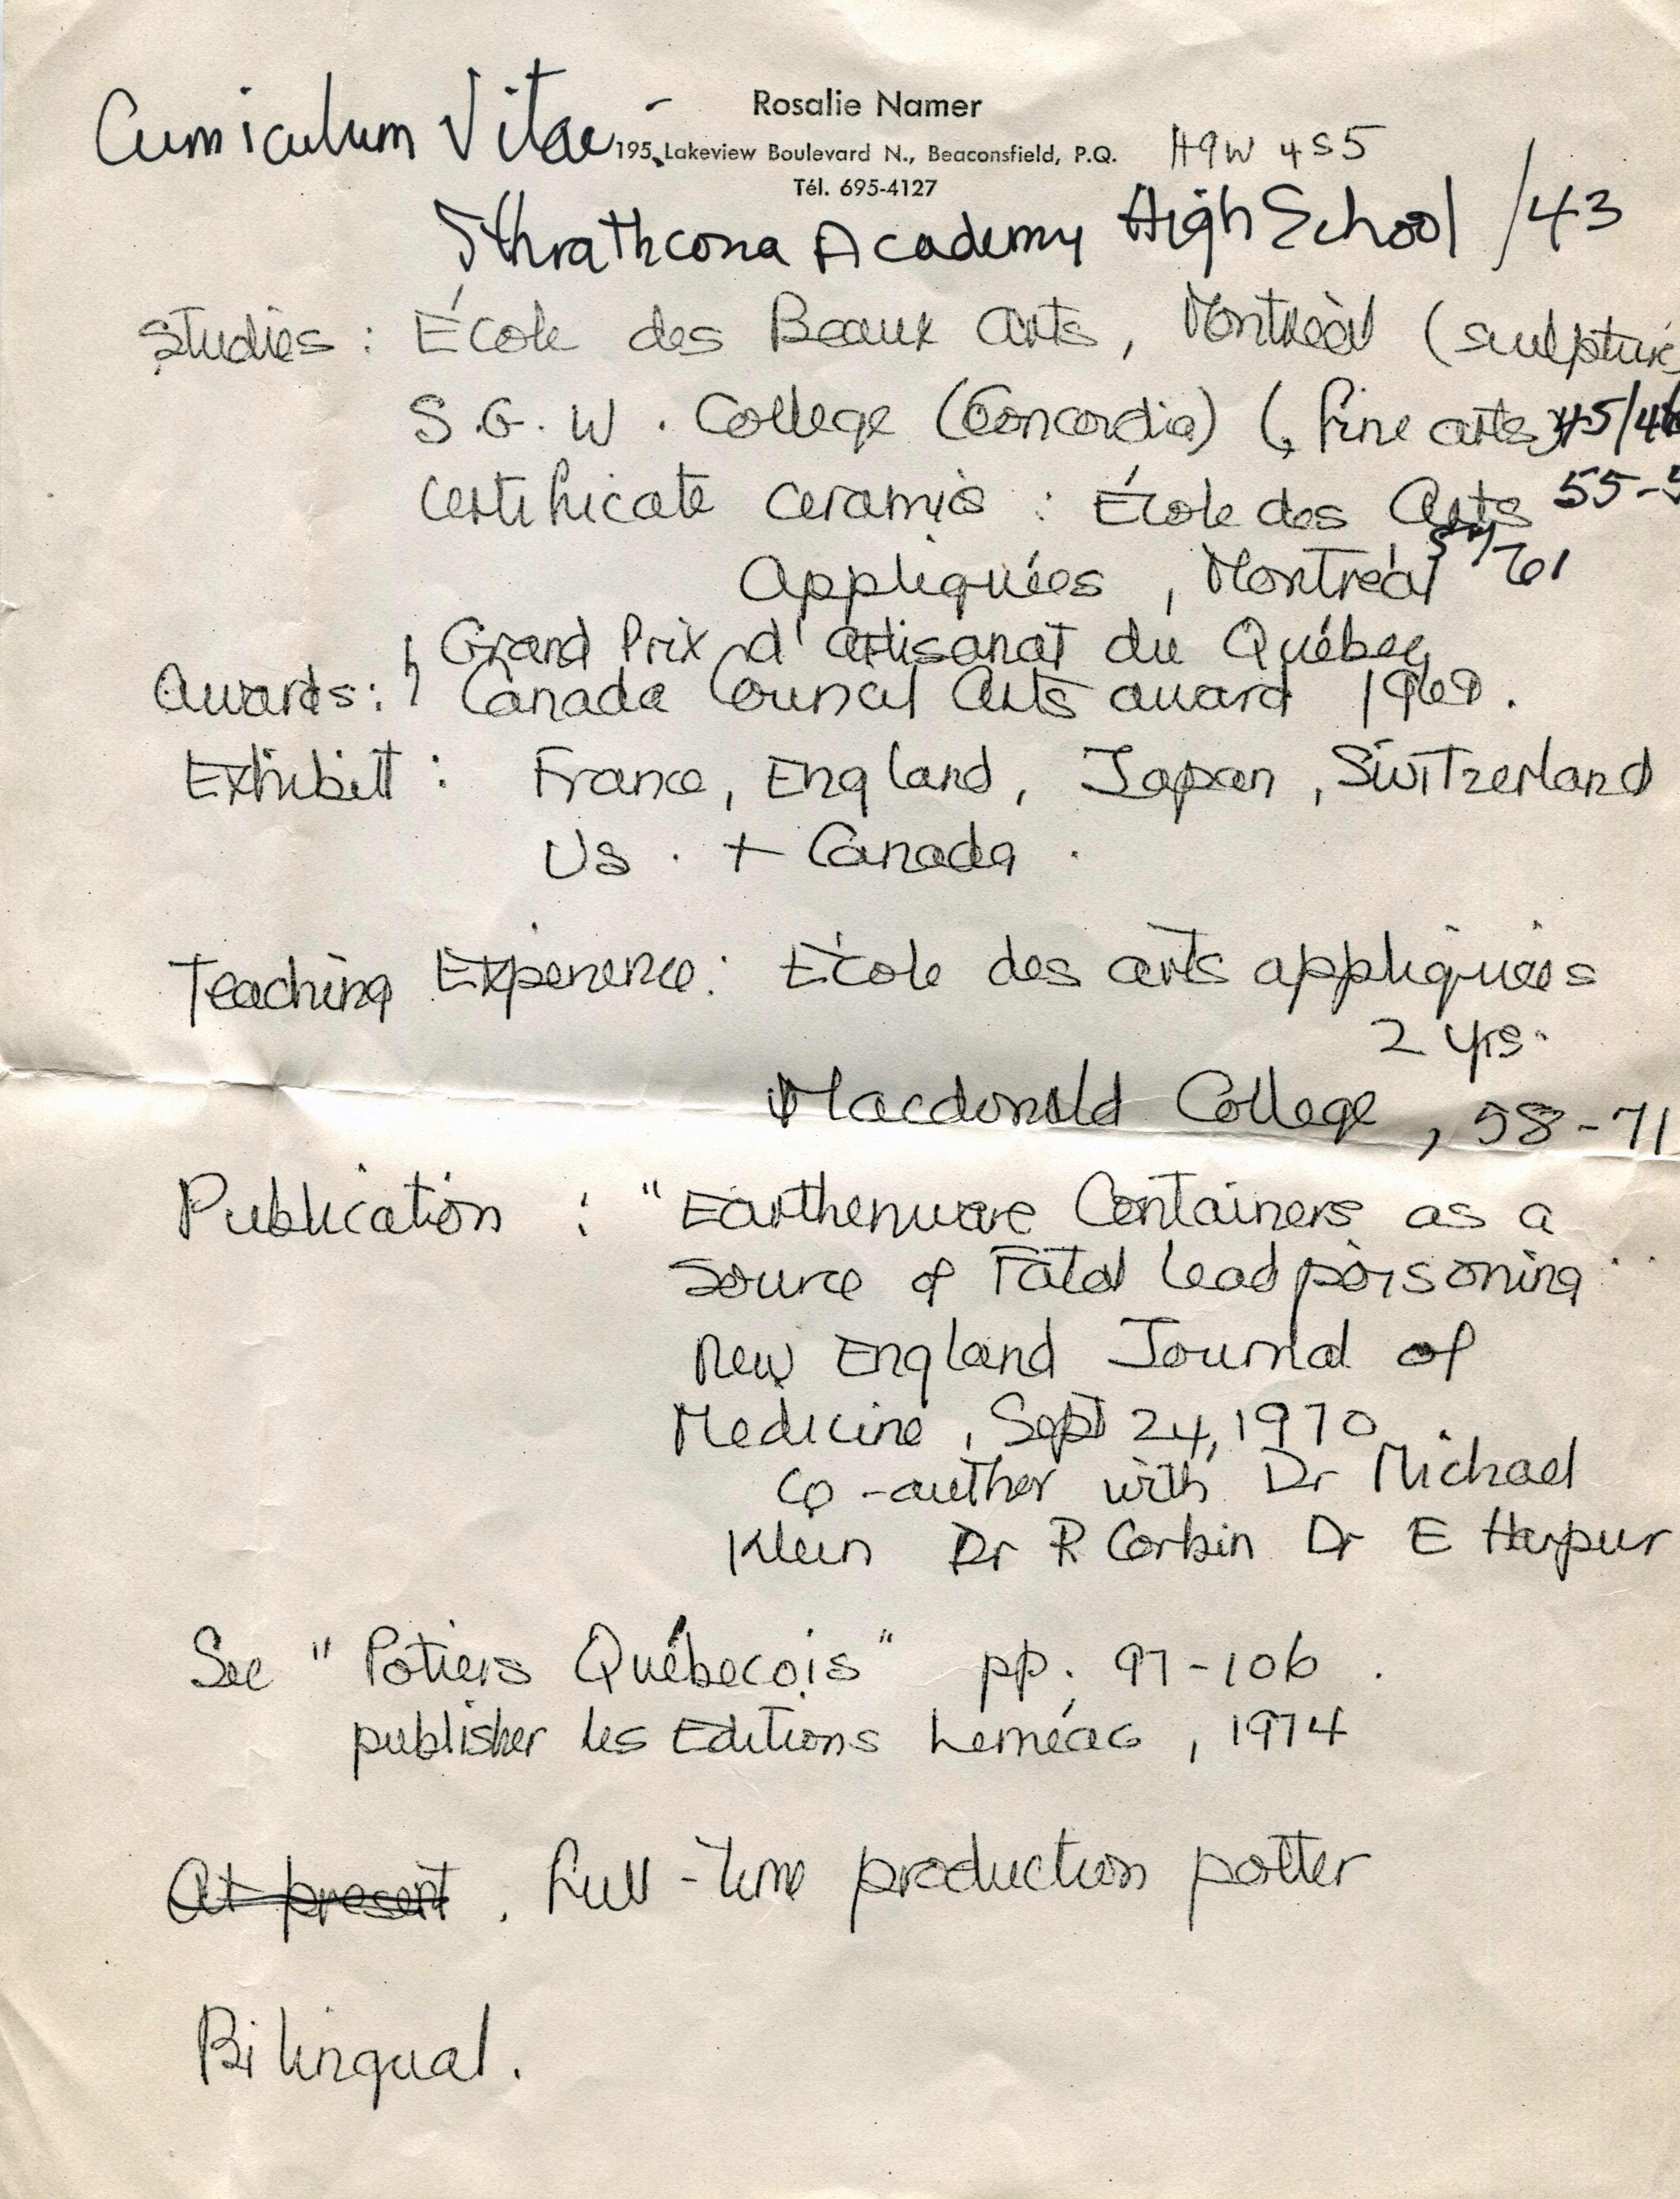 Curriculum Vitae -
Rosalie Namer
195, Lakeview Boulevard N., Beaconsfield, P.Q. H9W 4S5
Tél. 695-4127
Sthrathcona Academy High School /43
Studies : École des Beaux Arts, Montréal (sculpture)
S.G.W. College (Concordia) (Fine arts) 45/46
Certificate ceramics : École des Arts 55-
Appliquées, Montréal /61
Grand Prix d'artisanat du Québec
Awards: Canada Council Arts award 1969.
Exhibit : France, England, Japan, Switzerland
US. + Canada.
Teaching Experience: École des arts appliquées
2 yrs.
Macdonald College, 58-71
Publication : "Earthenware Containers as a
source of Fatal Lead poisoning"
New England Journal of
Medicine, Sept 24, 1970.
co-author with Dr Michael
Klein Dr R Corbin Dr E Harpur
See "Potiers Québecois" pp. 97-106.
publisher les Editions Leméac, 1974
At present. Full-time production potter
Bilingual.